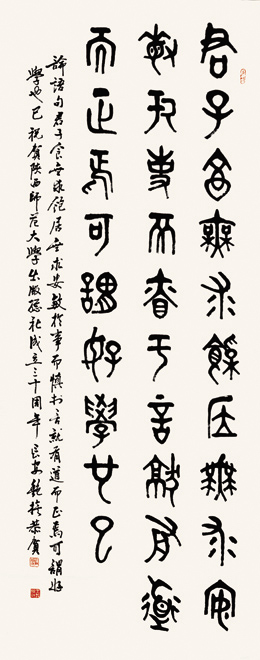 君子食無求飽居無求安
敏於事而慎于言就有道
而正焉可謂好學也已
論語句君子食無求飽居無求安敏於事而慎於言就有道而正焉可謂好
學也已 祝賀陝西師范大學出版總社成立三十周年 長安 恭賀